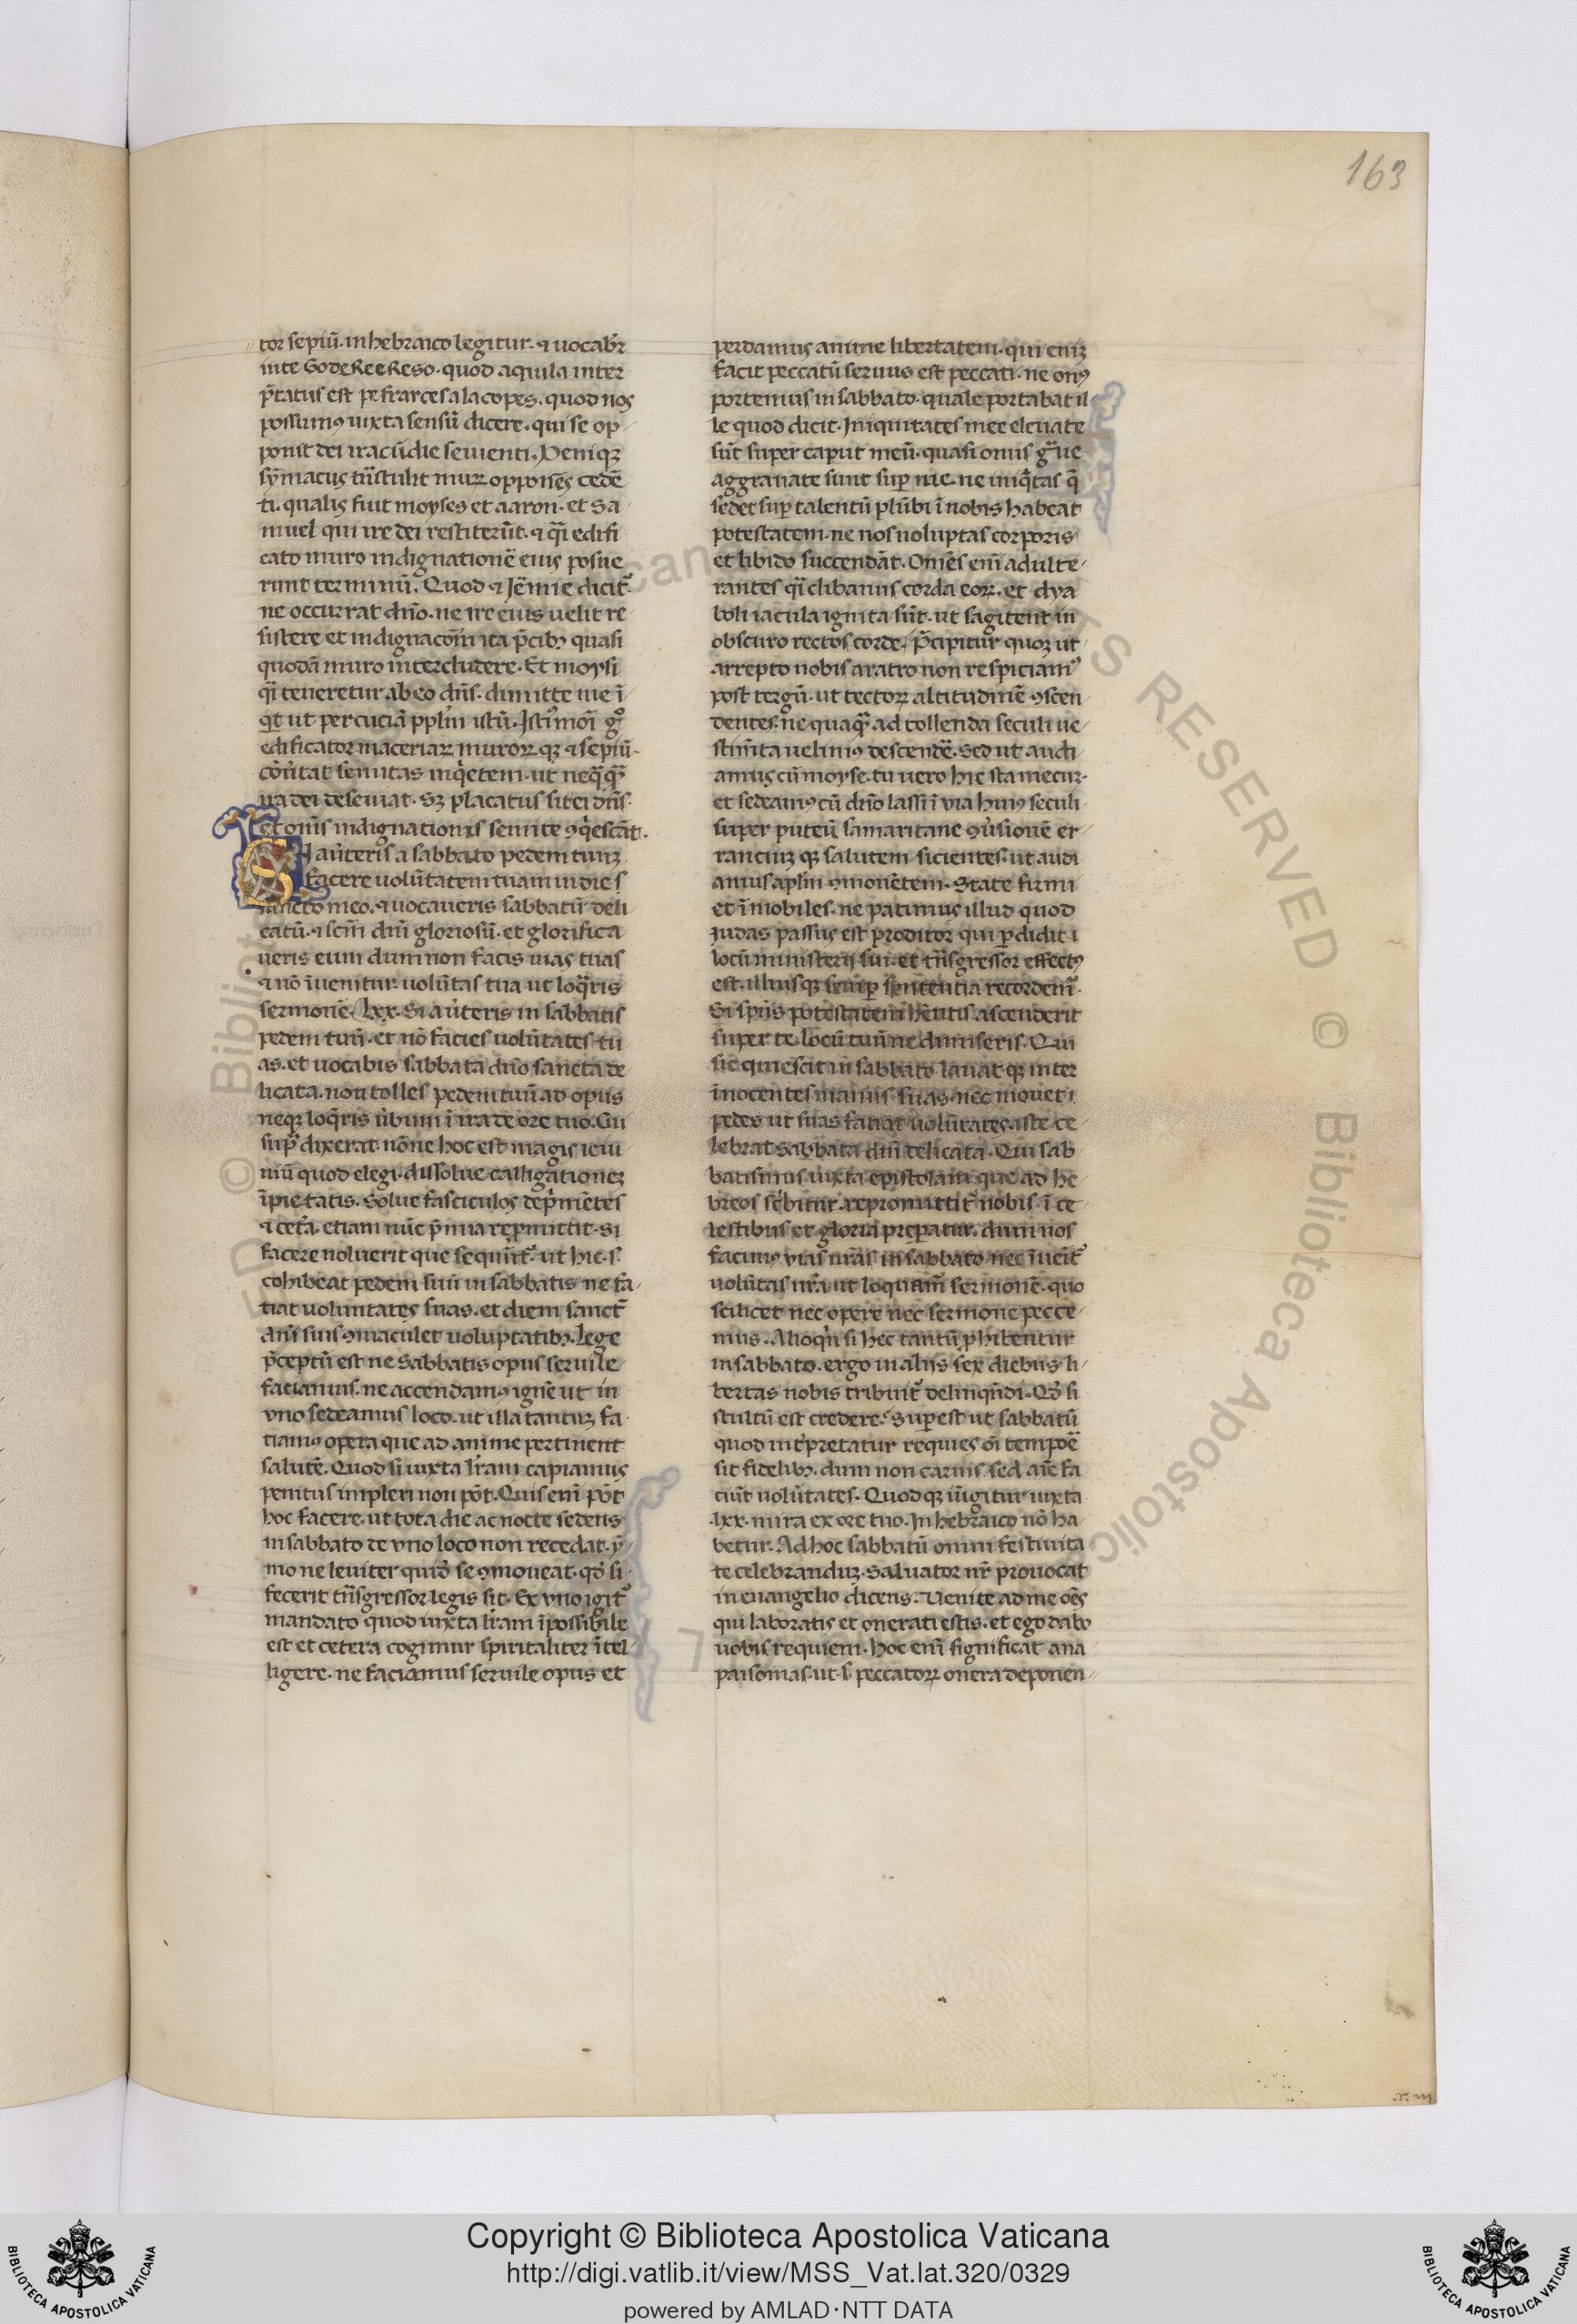 163
tor sepiū. in hebraico legitur. ⁊ uocabr̄
in te GodeReeReso. quod aquila inter
p̄tatus est pefrarcesalacopes. quod nos
possumꝰ iuxta sensū dicere. qui se op
ponit dei iracūdie seuienti. Deniqꝫ
sȳmacus trāstulit muꝝ opponēs cedē
ti. qualis fuit moyses et aaron. et sa
muel qui ire dei restiterūt. ⁊ q̄i edifi
cato muro indignationē eius posue
runt terminū. Quod ⁊ Jēmie dicit̄
ne occurrat dn̄o. ne ire eius uelit re
sistere et indignacōi ita p̄cibꝰ quasi
quodā muro intercludere. Et moysi
q̄i teneretur ab eo dn̄s. dimitte me ī
q̄t ut percuciā ppl̄m istū. Isti᷒moī gͦ
edificator maceriaꝝ muroꝝ qꝫ ⁊ sepiū
cōu̓tat semitas in q̓etem. ut neq̄q̄
ira dei deseuiat. Sꝫ placatus sit ei dn̄s.
et om̄s indignationis semite ꝯq̓escāt.
Si au̓teris a sabbato pedem tuuꝫ
facere uolūtatem tuam in die s
sancto meo. ⁊ uocaueris sabbatū deli
catū. ⁊ scm̄ dn̄i gloriosū. et glorifica
ueris eum dum non facis uias tuas
⁊ nō īuenitur uolūtas tua ut loq̄ris
sermonē. lxx. Si au̓teris in sabbatis
pedem tuū. et nō facies uolūtates tu
as. et uocabis sabbata dn̄o sancta de
licata. non tolles pedem tuū ad opus
neqꝫ loq̄ris u̓bum ī ira de ore tuo. Cu
sup̄ dixerat. nōne hoc est magis ieiu
niū quod elegi. dissolue calligationeꝫ
īpietatis. Solue fasciculos dep̄mētes
⁊ cet̄a. etiam nūc p̄mia rep̄mittit. si
facere noluerit que sequn̄t̄. ut hic. s.
cohibeat pedem suū in sabbatis ne fa
tiat uoluntates suas. et diem sanct̄
dn̄i suis ꝯmaculet uoluptatibꝰ. lege
p̄ceptū est ne sabbatis opus seruile
faciamus. ne accendamꝰ ignē ut in
vno sedeamus loco. ut illa tantuꝫ fa
tiamꝰ opera que ad anime pertinent
salutē. Quod si iuxta lr̄am capiamus
penitus impleri non pōt. Quis eni᷒ pōt
hoc facere. ut tota die ac nocte sedens
in sabbato de vno loco non recedat. ȳ
mo ne leuiter quid̓ se ꝯmoueat. qd̓ si
fecerit trāsgressor legis sit. Ex vno igit̄
mandato quod iuxta lr̄am īpossibile
est et cetera cogimur spiritaliter ītel
ligere. ne faciamus seruile opus et
perdamus anime libertatem. qui eniꝫ
facit peccatū seruus est peccati. ne onꝰ
portemus in sabbato. quale portabat il
le quod dicit. Iniquitates mee eleuate
sūt super caput meū. quasi onus ḡue
aggrauate sunt suꝑ me. ne iniq̄tas q̄
sedet suꝑ talentū plūbi ī nobis habeat
potestatem. ne nos uoluptas corporis
et libido succendāt. Omēs eni᷒ adulte
rantes q̄i clibanus corda eoꝝ. et dya
boli iacula ignita sūt. ut sagitent in
obscuro rectos corde. p̄cipitur quoqꝫ ut
arrepto nobis aratro non respiciamꝰ
post tergū. ut tectoꝝ altitudinē ꝯscen
dentes. ne quaq̄ ad tollenda seculi ue
stim̄ta uelimꝰ descendē. sed ut audi
amus cū moyse. tu uero hic sta mecuꝫ.
et sedeamꝰ cū dn̄o lassi ī via huiꝰ seculi
super puteū samaritane ꝯu̓sionē er
rancium qꝫ salutem sicientes. ut audi
amus aplm̄ ꝯmonētem. State firmi
et īmobiles. ne patimus illud quod
iudas passus est proditor qui ꝑdidit
locū ministerij sui. et trāsgressor effectꝰ
est. illiusqꝫ semꝑ sententia recordem̄.
Si spūs potestatem hn̄tis ascenderit
super te. locū tuū ne dimiseris. Qui
sic quiescit in sabbato lauat qꝫ inter
inocentes manus suas. nec mouet
pedes ut suas faciat uolūtates. iste ce
lebrat sabbata dn̄i delicata. Qui sab
batismus iuxta epistolam que ad he
breos sc̄bitur. repromittit̄ nobis ī ce
lestibus et gloria preparatur. dum nos
facimꝰ vias nr̄as in sabbato nec īueit̄
uolūtas nr̄a ut loquam̄ sermonē. quo
scilicet nec opere nec sermone pecce
mus. Alioq̓n si hec tantū ꝓhibentur
in sabbato. ergo in alijs sex diebus li
bertas nobis tribuit̄ delinqn̄di. Qd̓ si
stultū est credere. Suꝑest ut sabbatū
quod int̓pretatur requies oī tempoē
sit fidelibꝰ. dum non carnis sed aīe fa
ciūt uolūtates. Quodqꝫ iūgitur iuxta
lxx. in ira ex ore tuo. In hebraico nō ha
betur. Ad hoc sabbatū omni festiuita
te celebranduꝫ. Saluator nr̄ prouocat
in euangelio dicens. Uenite ad me oēs
qui laboratis et onerati estis. et ego dabo
uobis requiem. hoc eni᷒ significat ana
paisomas. ut. s̄ peccatoꝝ onera deponen
Copyright © Biblioteca Apostolica Vaticana
http://digi.vatlib.it/view/MSS_Vat.lat.320/0329
powered by AMLAD·NTT DATA
BIBLIOTECA APOSTOLICA VATICANA
BIBLIOTECA APOSTOLICA VATICANA